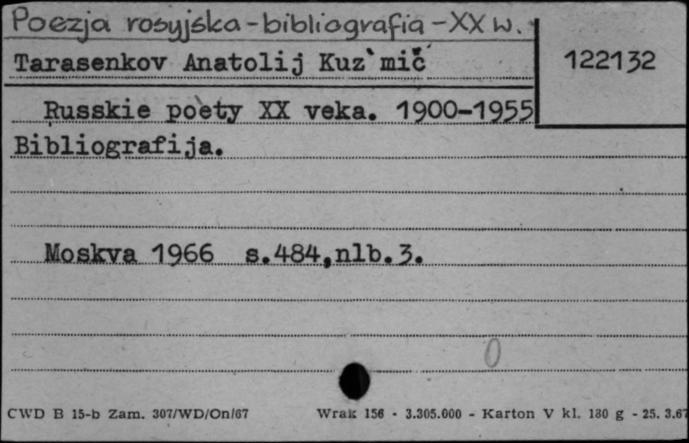 Poezja rosyjska - bibliografia - XX w.
Tarasenkov Anatolij Kuz`mič
122132
Russkie poèty XX veka. 1900-1955
Bibliografija.
Moskva 1966 s.484,nlb.3.
0
CWD B 15-b Zam. 307/WD/On/67 Wrak 156 - 3.305.000 - Karton V kl. 180 g - 25. 3.67